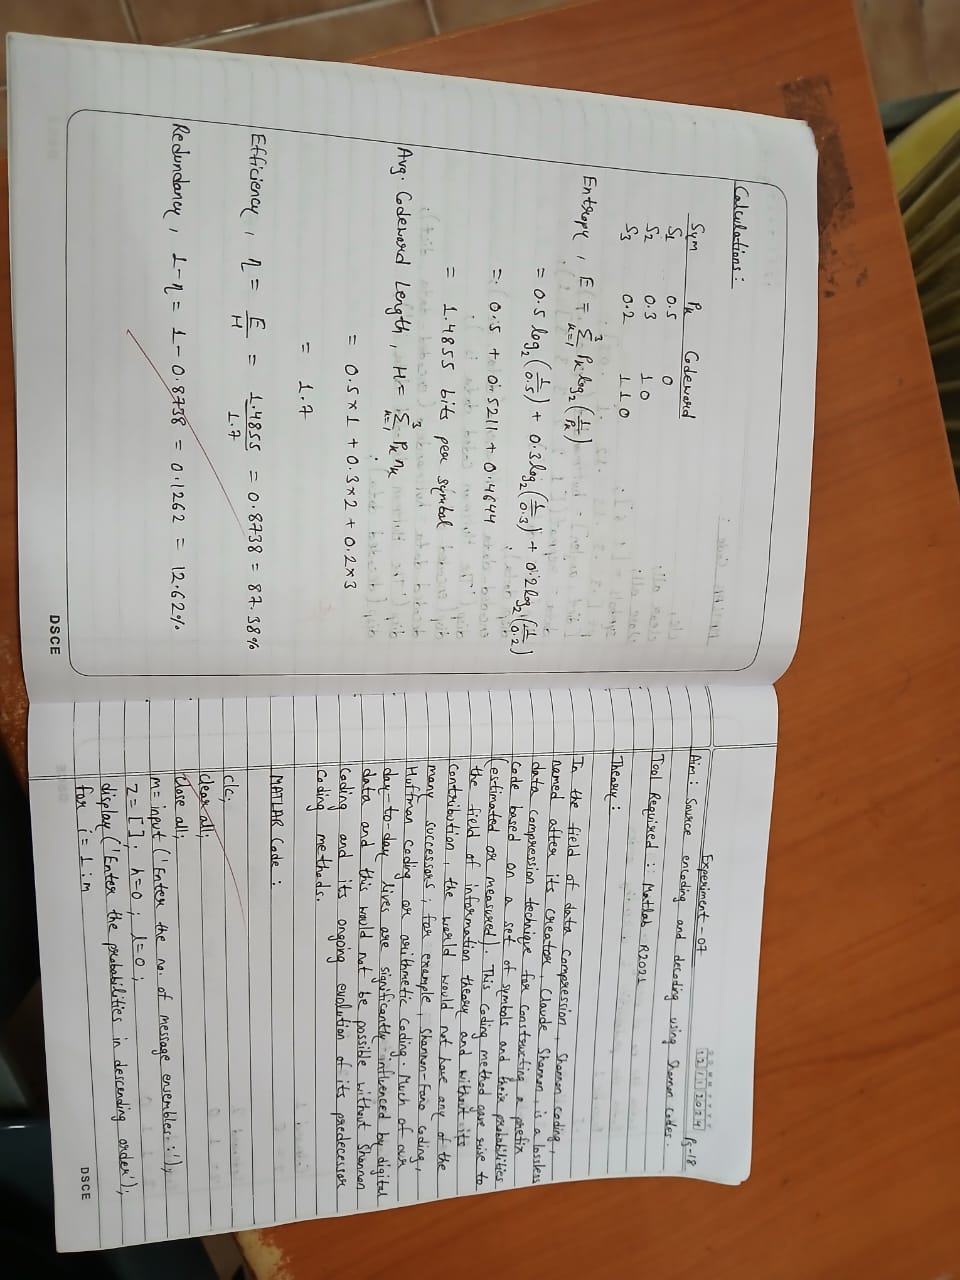 Calculations:
Sym Pk Codeword
S1 0.5 0
S2 0.3 1 0
S3 0.2 1 1 0
Entropy, E = 3Σk=1 Pk log2(1/Pk)
= 0.5 log2(1/0.5) + 0.3 log2(1/0.3) + 0.2 log2(1/0.2)
= 0.5 + 0.5211 + 0.4644
= 1.4855 bits per symbol
Avg. Codeword Length, H = 3Σk=1 Pk nk
= 0.5×1 + 0.3×2 + 0.2×3
= 1.7
Efficiency, η = E/H = 1.4855/1.7 = 0.8738 = 87.38%
Redundancy, 1-η = 1 - 0.8738 = 0.1262 = 12.62%
DSCE
D D M M Y Y Y Y
1 2 1 1 2 0 2 4
Pg-18
Experiment - 07
Aim: Source encoding and decoding using Shannon codes.
Tool Required : Matlab R2021
Theory:
In the field of data compression, Shannon coding,
named after its creator, Claude Shannon, is a lossless
data compression technique for constructing a prefix
code based on a set of symbols and their probabilities
(estimated or measured). This coding method gave rise to
the field of information theory and without its
contribution, the world would not have any of the
many successors; for example, Shannon-Fano coding,
Huffman coding or arithmetic coding. Much of our
day-to-day lives are significantly influenced by digital
data and this would not be possible without Shannon
coding and its ongoing evolution of its predecessor
coding methods.
MATLAB Code :
clc;
clear all;
close all;
m= input ('Enter the no. of message ensembles :');
z= []; h=0; l=0;
display ('Enter the probabilities in descending order');
for i = 1:m
DSCE